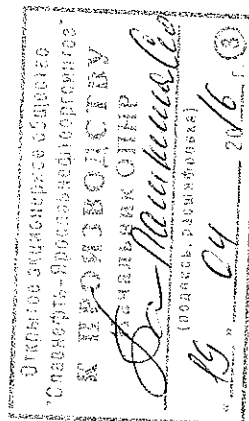 Открытое акционерное общество
"Славнефть-Ярославнефтеоргсинтез"
К ПРОИЗВОДСТВУ
Начальник ОППР
(подпись, расшифровка)
"19" 04 2016 г. (3)